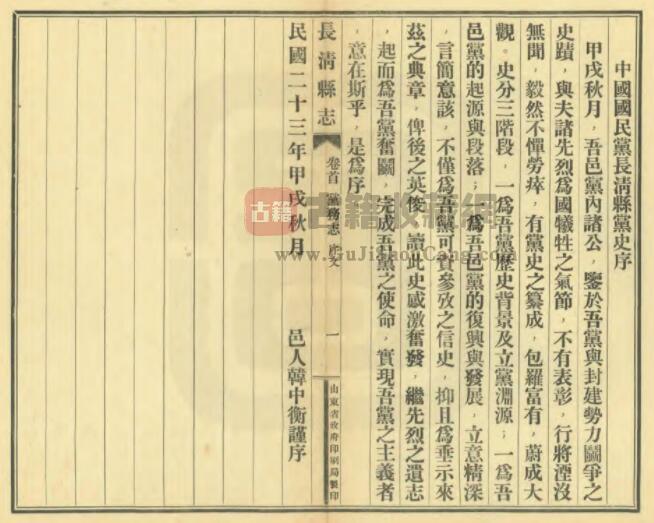 中國國民黨長清縣黨史序
甲戌秋月，吾邑黨內諸公，鑒於吾黨與封建勢力鬭爭之
史蹟，與夫諸先烈爲國犧牲之氣節，不有表彰，行將湮沒
無聞，毅然不憚勞瘁，有黨史之纂成，包羅富有，蔚成大
觀。史分三階段，一爲吾黨歷史背景及立黨淵源；一爲吾
邑黨的起源與段落；一爲吾邑黨的復興與發展，立意精深
，言簡意該，不僅爲吾黨可資參攷之信史，抑且爲垂示來
茲之典章，俾後之英俊，讀此史感激奮發，繼先烈之遺志
，起而爲吾黨奮鬭，完成吾黨之使命，實現吾黨之主義者
，意在斯乎，是爲序
長清縣志 卷首 黨務志 序文 一 山東省政府印刷局製印
民國二十三年甲戌秋月 邑人韓中衡謹序
古籍 古籍收藏网
www.GuJiShouCang.com